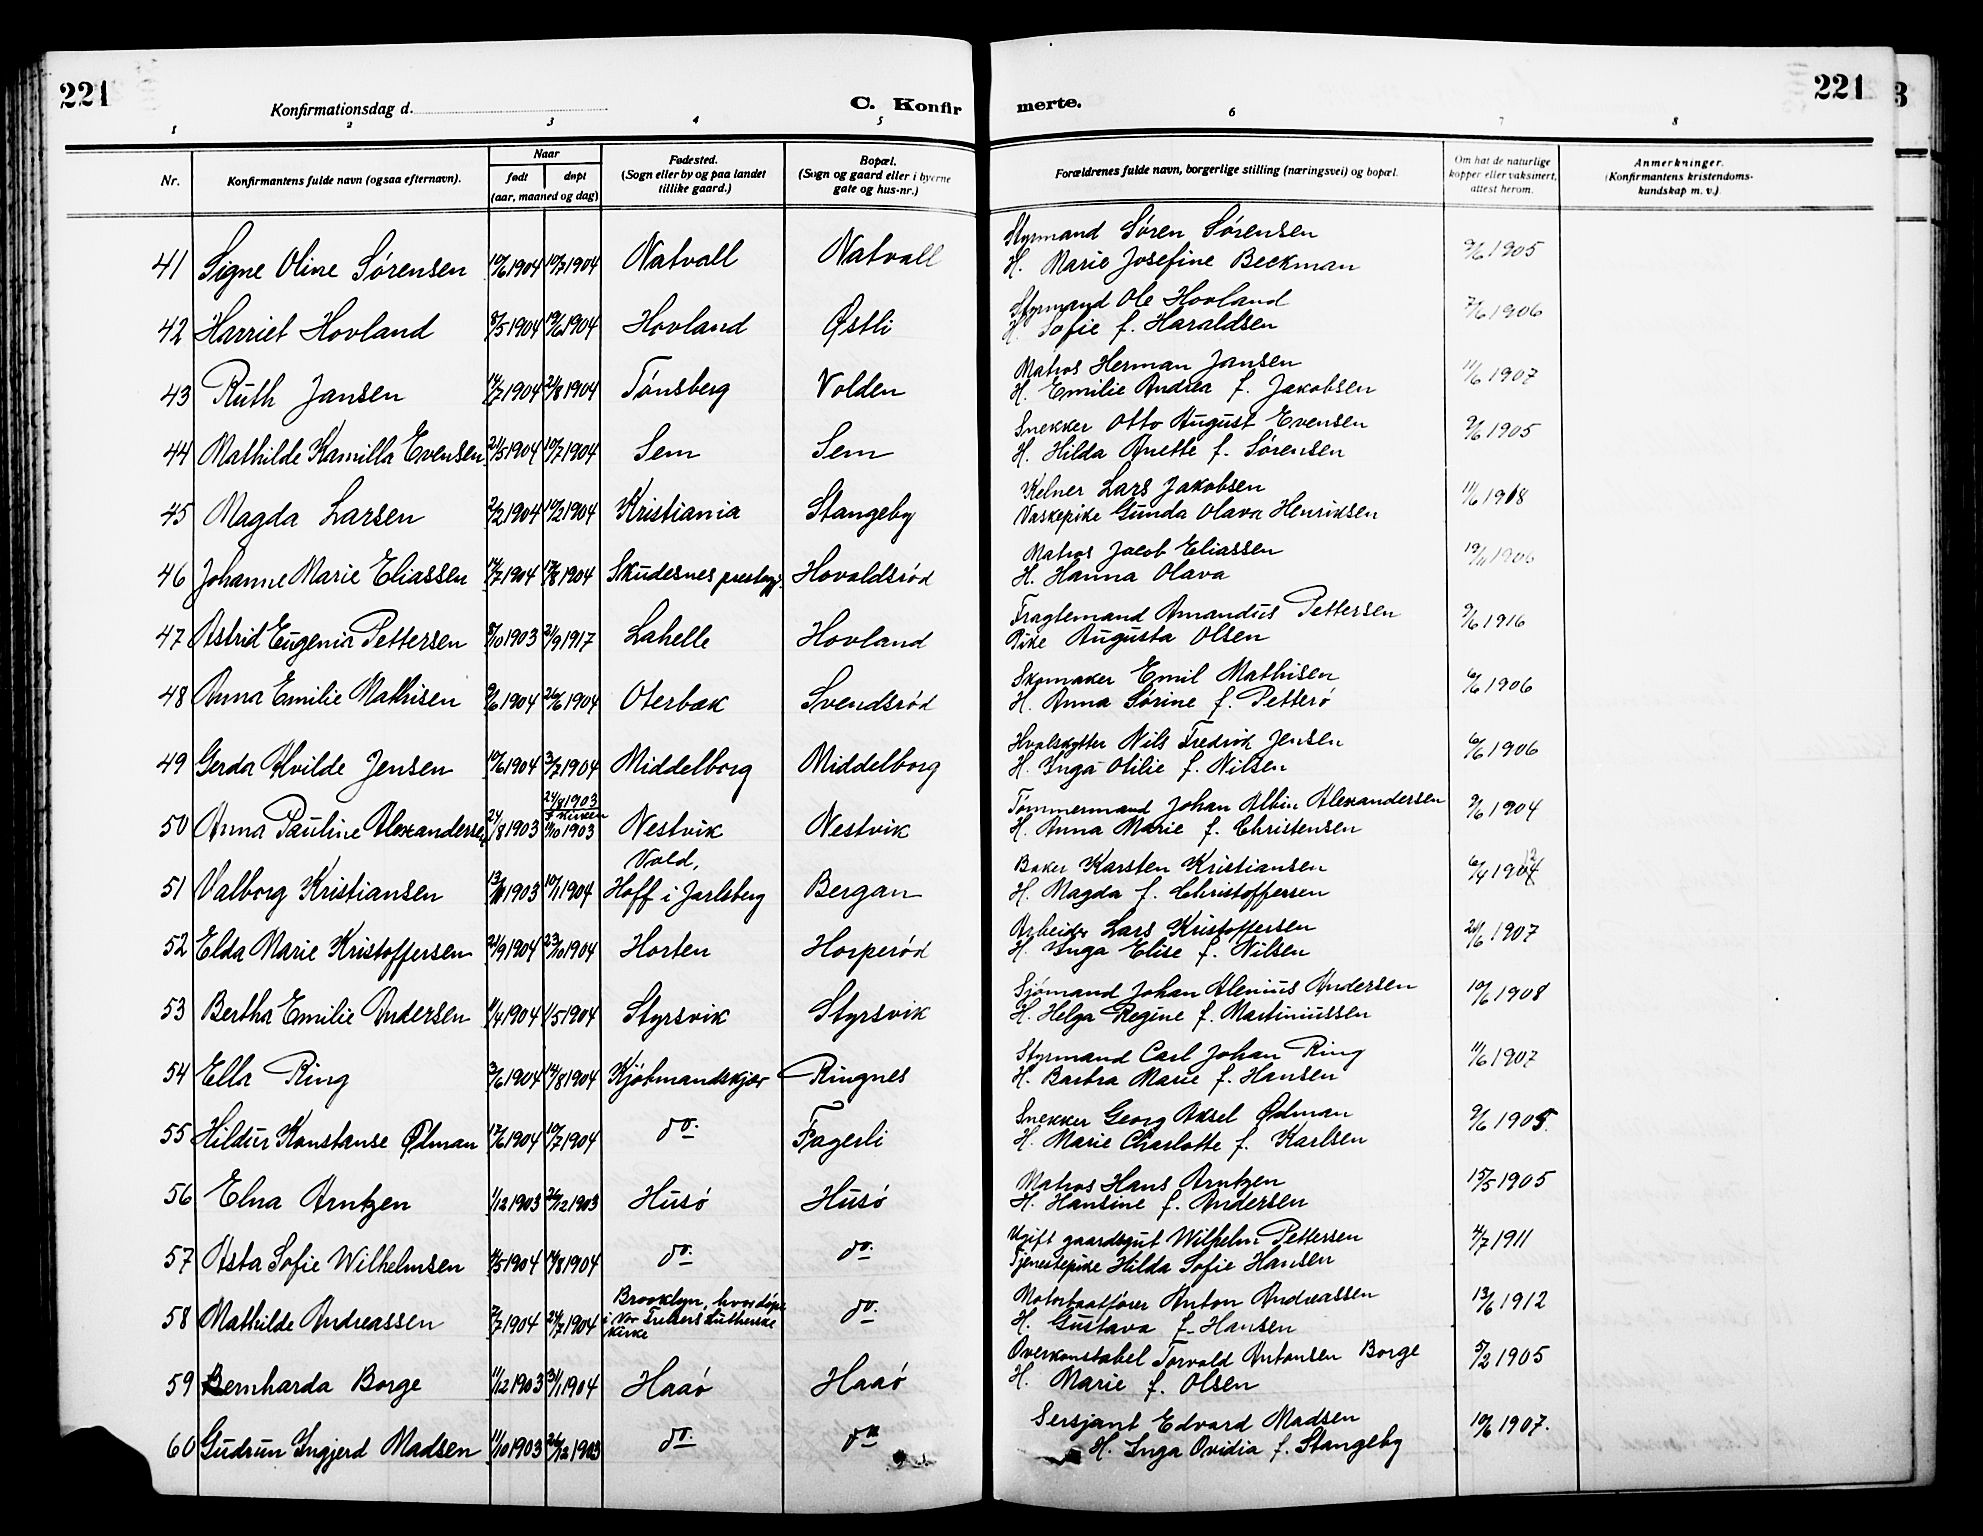 221
Konfirmationsdag d.
C. Konfir
merte.
221
3
1 2 3 4 5 6 7 8
Nr.
Konfirmantens fulde navn (ogsaa efternavn).
Naar
født døpt
(aar, maaned og dag)
Fødested.
(Sogn eller by og paa landet
tillike gaard.)
Bopæl.
(Sogn og gaard eller i byerne
gate og hus-nr.)
Forældrenes fulde navn, borgerlige stilling (næringsvei) og bopæl.
Om hat de naturlige
kopper eller vaksinert,
attest herom.
Anmerkninger.
(Konfirmantens kristendoms-
kundskap m. v.)
Styrmand Søren Sørensen
41 Signe Oline Sørensen 10/6 1904 10/7 1904 Natvall Natvall 9/6 1905
H. Marie Josefine Beckman
Styrmand Ole Hovland
42 Harriet Hovland 8/5 1904 19/6 1904 Hovland Østli 7/6 1906
H. Sofie f. Haraldsen
Matros Herman Jansen
43 Ruth Jansen 14/7 1904 21/8 1904 Tønsberg Volden 11/6 1907
H. Emilie Andrea f. Jakobsen
Snekker Otto August Evensen
44 Mathilde Kamilla Evensen 21/5 1904 10/7 1904 Sem Sem 9/6 1905
H. Hilda Anette f. Sørensen
Kelner Lars Jakobsen
45 Magda Larsen 2/2 1904 14/2 1904 Kristiania Stangeby 11/6 1918
Vaskepike Gunda Olava Henriksen
Matros Jacob Eliassen
46 Johanne Marie Eliassen 14/7 1904 14/8 1904 Skudesnes prestegj. Hovaldsrød 19/11 1906
H. Hanna Olava
Fragtemand Amandus Pettersen
47 Astrid Eugenia Pettersen 8/10 1903 21/9 1917 Lahelle Hovland 9/6 1916
Pike Augusta Olsen
Skomaker Emil Mathisen
48 Anna Emilie Mathisen 9/6 1904 26/6 1904 Oterbæk Svendsrød 6/6 1906
H. Anna Sørine f. Petterø
Hvalskytter Nils Fredrik Jensen
49 Gerda Alvilde Jensen 10/6 1904 3/7 1904 Middelborg Middelborg 6/6 1906
H. Inga Otilie f. Nilsen
24/8 1903
f. Kirken
Tømmermand Johan Albin Alexandersen
50 Anna Pauline Alexandersen 24/8 1903 11/10 1903 Nestvik Nestvik 9/6 1904
H. Anna Marie f. Christensen
Vold,
Baker Karsten Kristiansen
51 Valborg Kristiansen 13/11 1903 10/1 1904 Hoff i Jarlsberg Bergan 6/4 1904 12
H. Magda f. Christoffersen
Arbeider Lars Kristoffersen
52 Elda Marie Kristoffersen 21/9 1904 23/10 1904 Horten Horperød 20/6 1907
H. Inga Elise f. Nilsen
Sjømand Johan Alenius Andersen
53 Bertha Emilie Andersen 11/4 1904 1/5 1904 Styrsvik Styrsvik 10/6 1908
H. Helga Regine f. Martiniussen
Styrmand Carl Johan Ring
54 Ella Ring 3/6 1904 14/8 1904 Kjøbmandskjær Ringnes 11/6 1907
H. Barbra Marie f. Hansen
Snekker Georg Aksel Ødman
55 Hildur Konstanse Ødman 17/6 1904 10/7 1904 do. Fagerli 9/6 1905.
H. Marie Charlotte f. Karlsen
Matros Hans Arntzen
56 Elna Arntzen 1/12 1903 26/12 1903 Husø Husø 15/5 1905
H. Hansine f. Andersen
Ugift gaardsgut Wilhelm Pettersen
57 Asta Sofie Wilhelmsen 14/5 1904 14/8 1904 do. do. 4/7 1911
Tjenestepike Hilda Sofie Hansen
Brooklyn, hvor døpt
Motorbaatfører Anton Andreassen
58 Mathilde Andreassen 2/7 1904 24/7 1904 i Vor Frelsers Lutherske do. 13/6 1912
kirke
H. Gustava f. Hansen
Overkonstabel Torvald Antonsen Borge
59 Bernharda Borge 11/12 1903 31/1 1904 Haaø Haaø 5/2 1905
H. Marie f. Olsen
Sersjant Edvard Madsen
60 Gudrun Ingjerd Madsen 11/10 1903 26/12 1903 do. do. 10/6 1907.
H. Inga Ovidia f. Stangeby